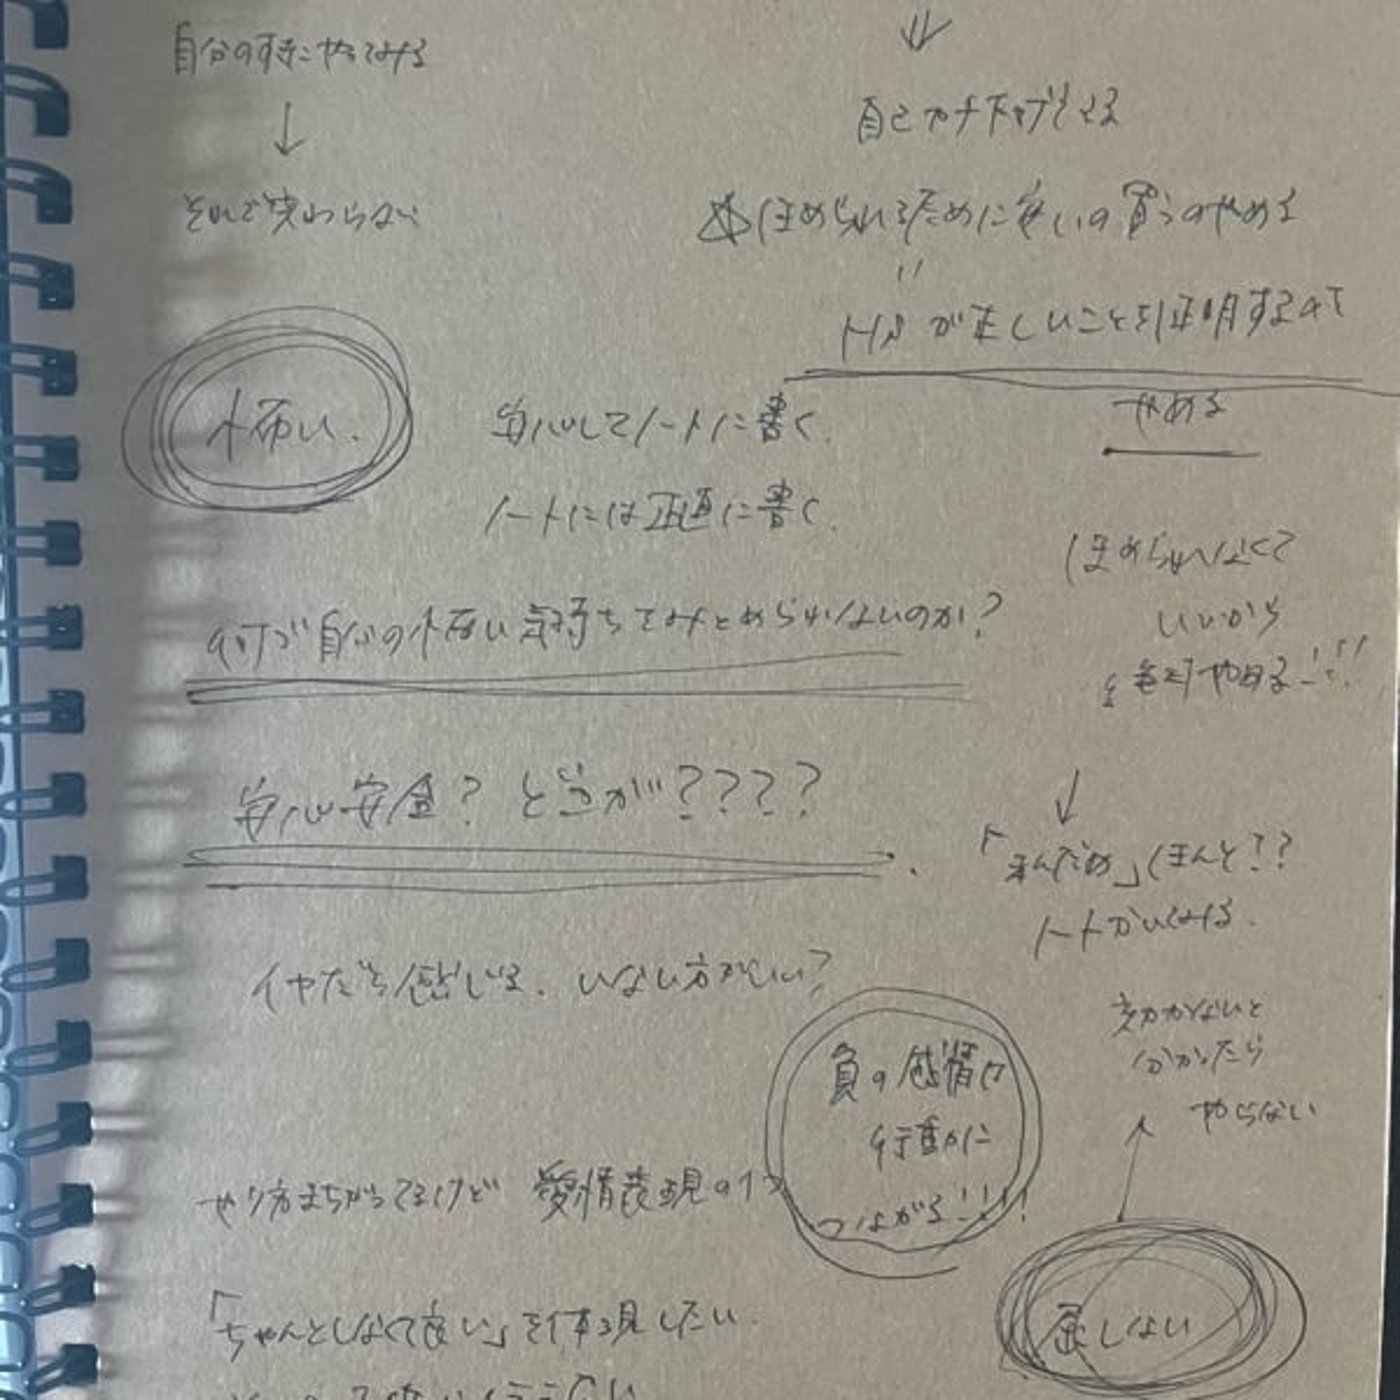 自分のすきにやってみる
↓
それで変わらない
怖い.
安心してノートに書く.
ノートには正直に書く.
自分の怖い気持ちてみとめられないのか?
安心安全? どこが????
イヤだと感じる. いない方がいい?
やり方まちがってるけど 愛情表現の1つ
「ちゃんとしなくて良い」を体現したい.
⇓
自己カチ下がってる
ほめられるために安いの買うのやめる
〃
が正しいことを証明するの
やめる
ほめられなくて
いいから
絶対やめる!!!
↓
ほんと??
ノートかいてみる.
負の感情が
行動に
つながる!!!!
効かないと
分かったら
やらない
↑
屈しない